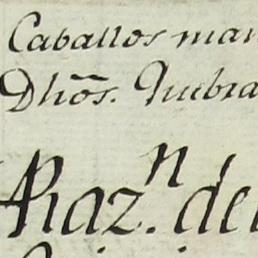 Caballos man
Dhos. Quebra
Raz.n del